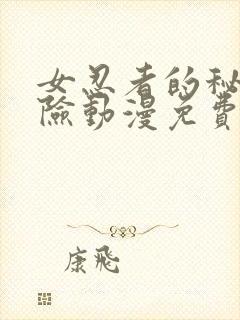 女忍者的秘
險動漫免費
康飛